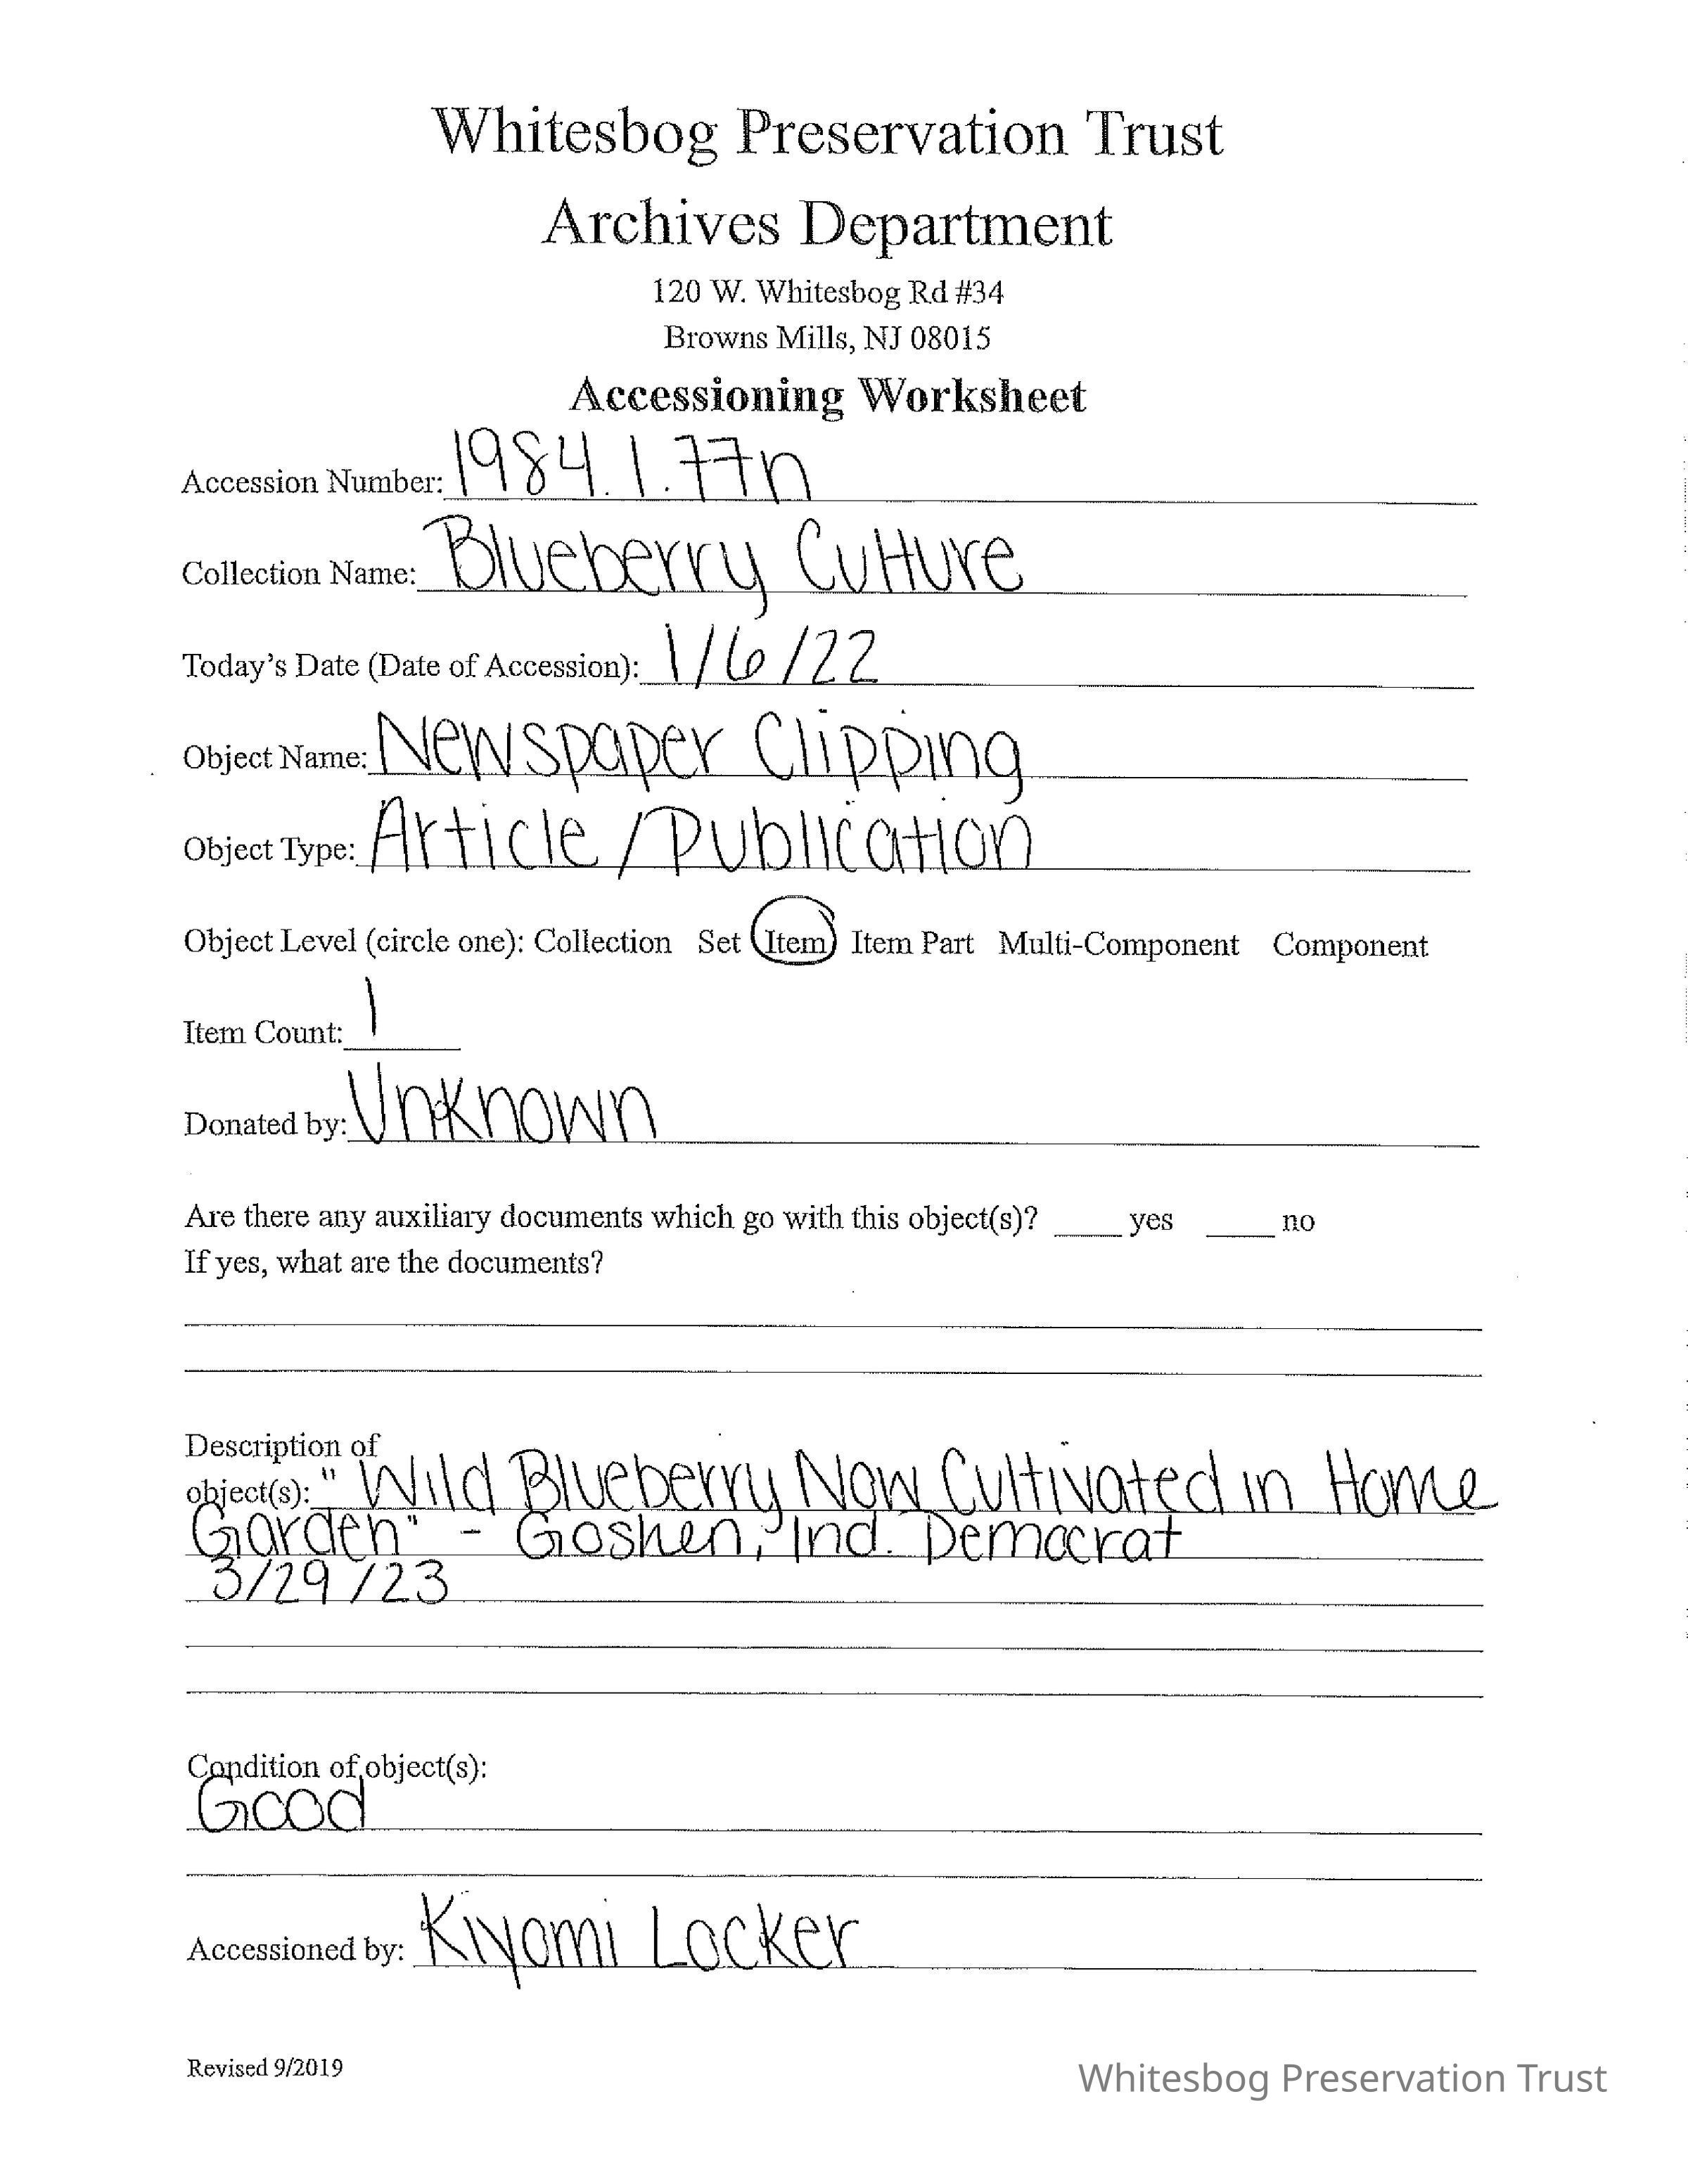 Whitesbog Preservation Trust
Archives Department
120 W. Whitesbog Rd #34
Browns Mills, NJ 08015
Accessioning Worksheet
Accession Number: 1984.1.77n
Collection Name: Blueberry Culture
Today's Date (Date of Accession): 1/6/22
Object Name: Newspaper Clipping
Object Type: Article/Publication
Object Level (circle one): Collection Set Item Item Part Multi-Component Component
Item Count: 1
Donated by: Unknown
Are there any auxiliary documents which go with this object(s)? ____ yes ____ no
If yes, what are the documents?
Description of
object(s): "Wild Blueberry Now Cultivated in Home
Garden" - Goshen, Ind. Democrat
3/29/23
Condition of object(s):
Good
Accessioned by: Kiyomi Locker
Revised 9/2019
Whitesbog Preservation Trust